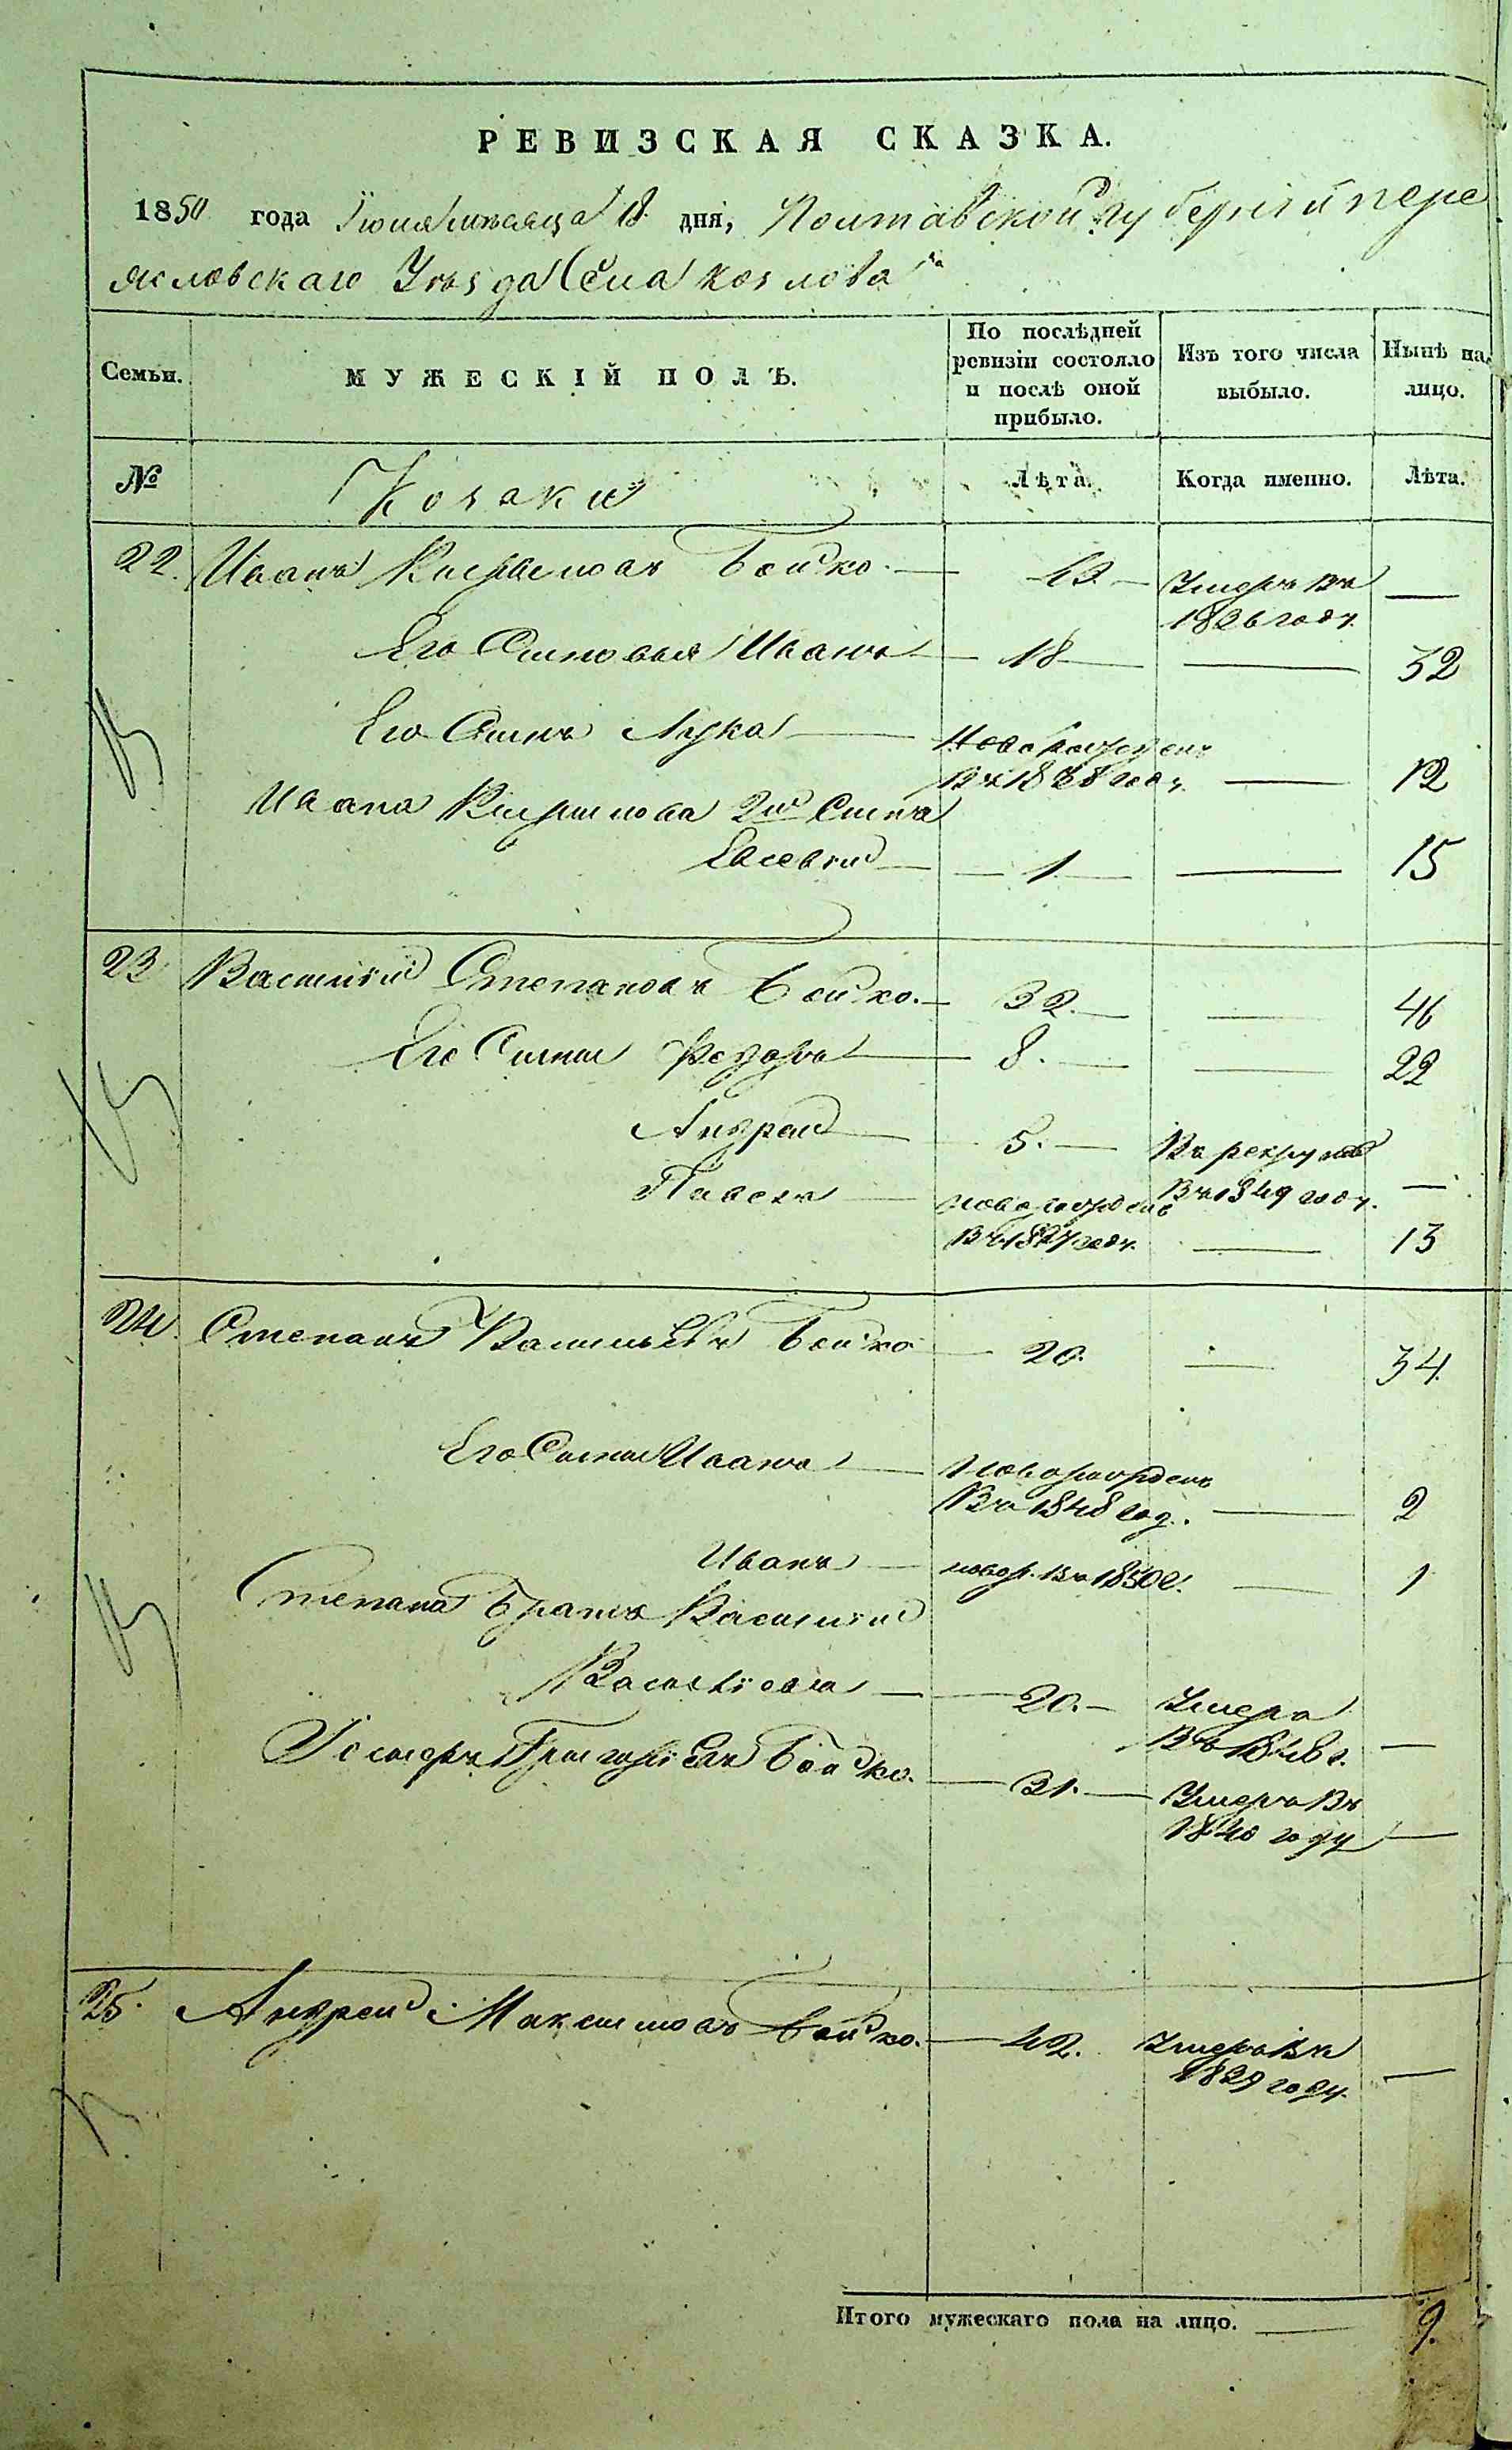 РЕВИЗСКАЯ СКАЗКА.
1850 года Іюня мѣсяца 18 дня, Полтавской губерніи пере
яславскаго Уѣзда Села Козлова
Семьи. МУЖЕСКІЙ ПОЛЪ. По послѣдней ревизіи состояло и послѣ оной прибыло. Изъ того числа выбыло. Нынѣ на лицо.
№ Козаки Лѣта. Когда именно. Лѣта.
22. Иванъ Бойко. — Умеръ въ —
1836 году.
Его Сыновья Иванъ — 18 — 32
Его Сынъ Лука — Новорожденъ
Въ 1838 году. — 12
Ивана 2й Сынъ
Евсевій — 1 — 15
23 Василий Степановъ Бойко. — 32. — 46
Его Сыны Федоръ — 8. — 22
Андрей — 5. — Въ рекруты
Павелъ — новорожденъ Въ 1849 году. —
Въ 1837 году. — 13
24. Степанъ Васильевъ Бойко — 20. — 34.
Его Сыны Иванъ — Новорожденъ
Въ 1848 год. — 2
Иванъ — новор. Въ 1850 г. — 1
Степана братъ Василий
Васильевъ — 20. — Умеръ
Въ 1848 г. —
Григорьевъ Бойко. — 31. — Умеръ Въ
1840 году —
25. Андрей Максимовъ Бойко. — 42. Умеръ Въ
1839 году. —
Итого мужескаго пола на лицо. — 9.